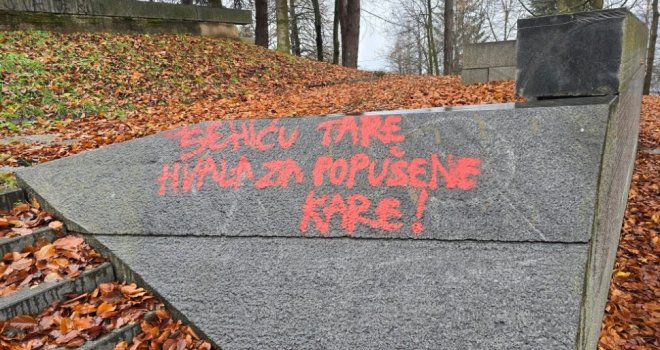 BEHIĆU TARE
HVALA ZA POPUŠENE
KARE!